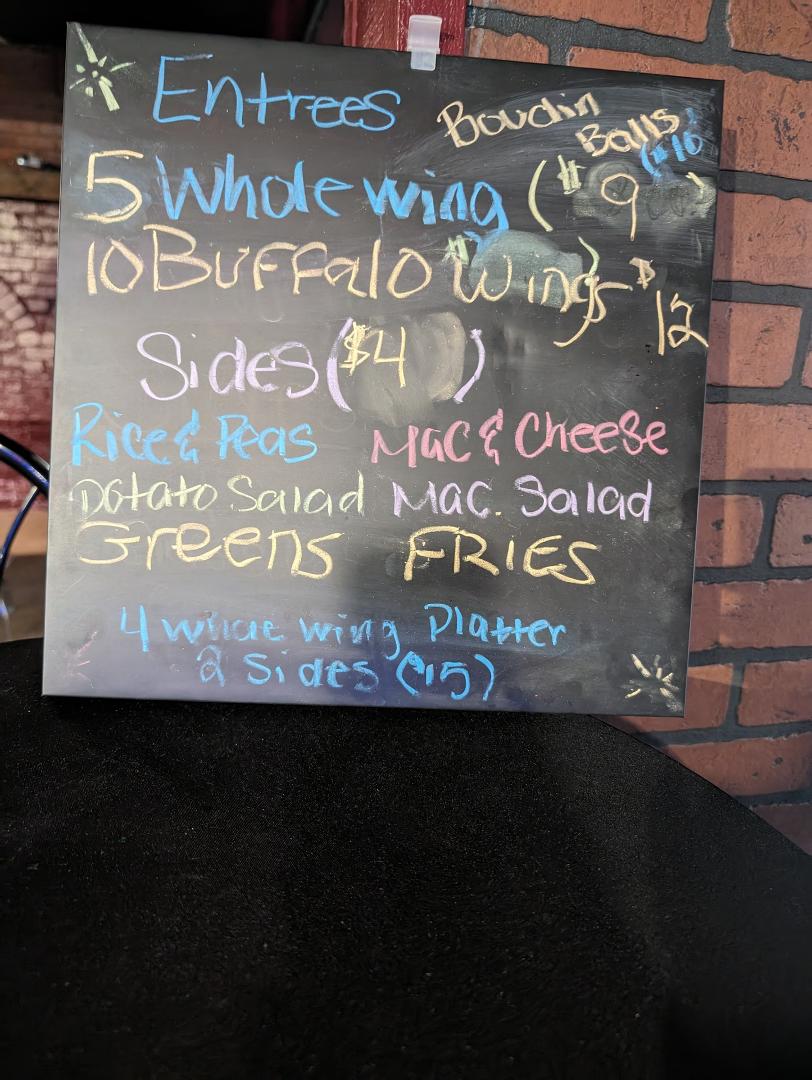 Entrees
Boudin
Balls
($10)
5 Whole wing ($9)
10 Buffalo Wings $12
Sides ($4)
Rice & Peas Mac & Cheese
Potato Salad Mac. Salad
Greens FRIES
4 whole wing Platter
2 Sides ($15)